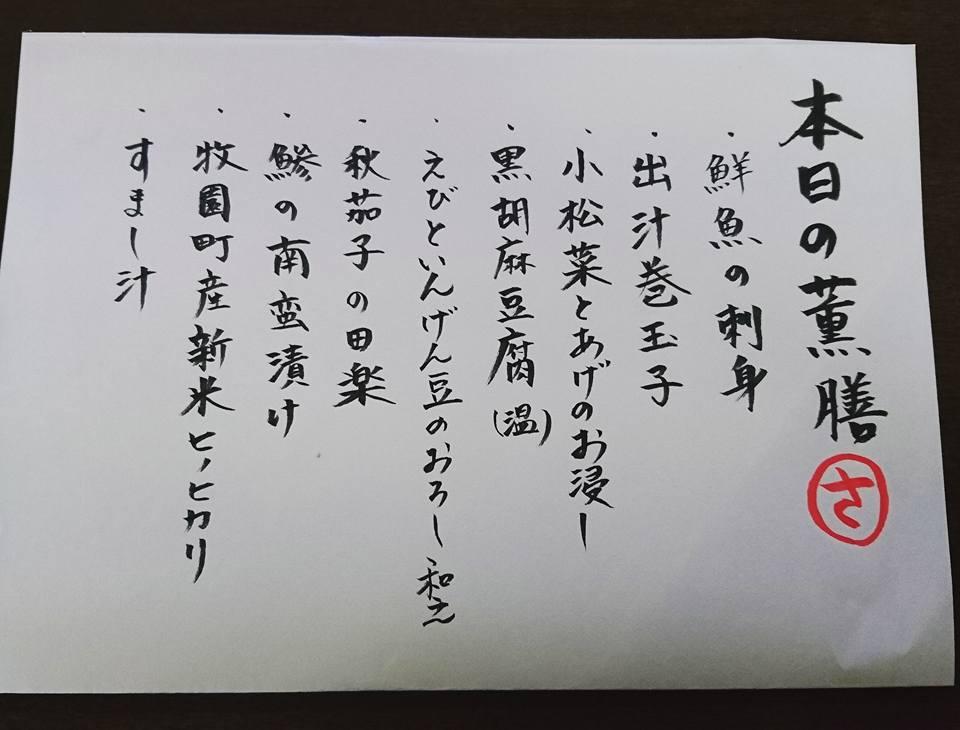 本日の薫膳
さ
・鮮魚の刺身
・出汁巻玉子
・小松菜とあげのお浸し
・黒胡麻豆腐(温)
・えびといんげん豆のおろし和え
・秋茄子の田楽
・鯵の南蛮漬け
・牧園町産新米ヒノヒカリ
・すまし汁